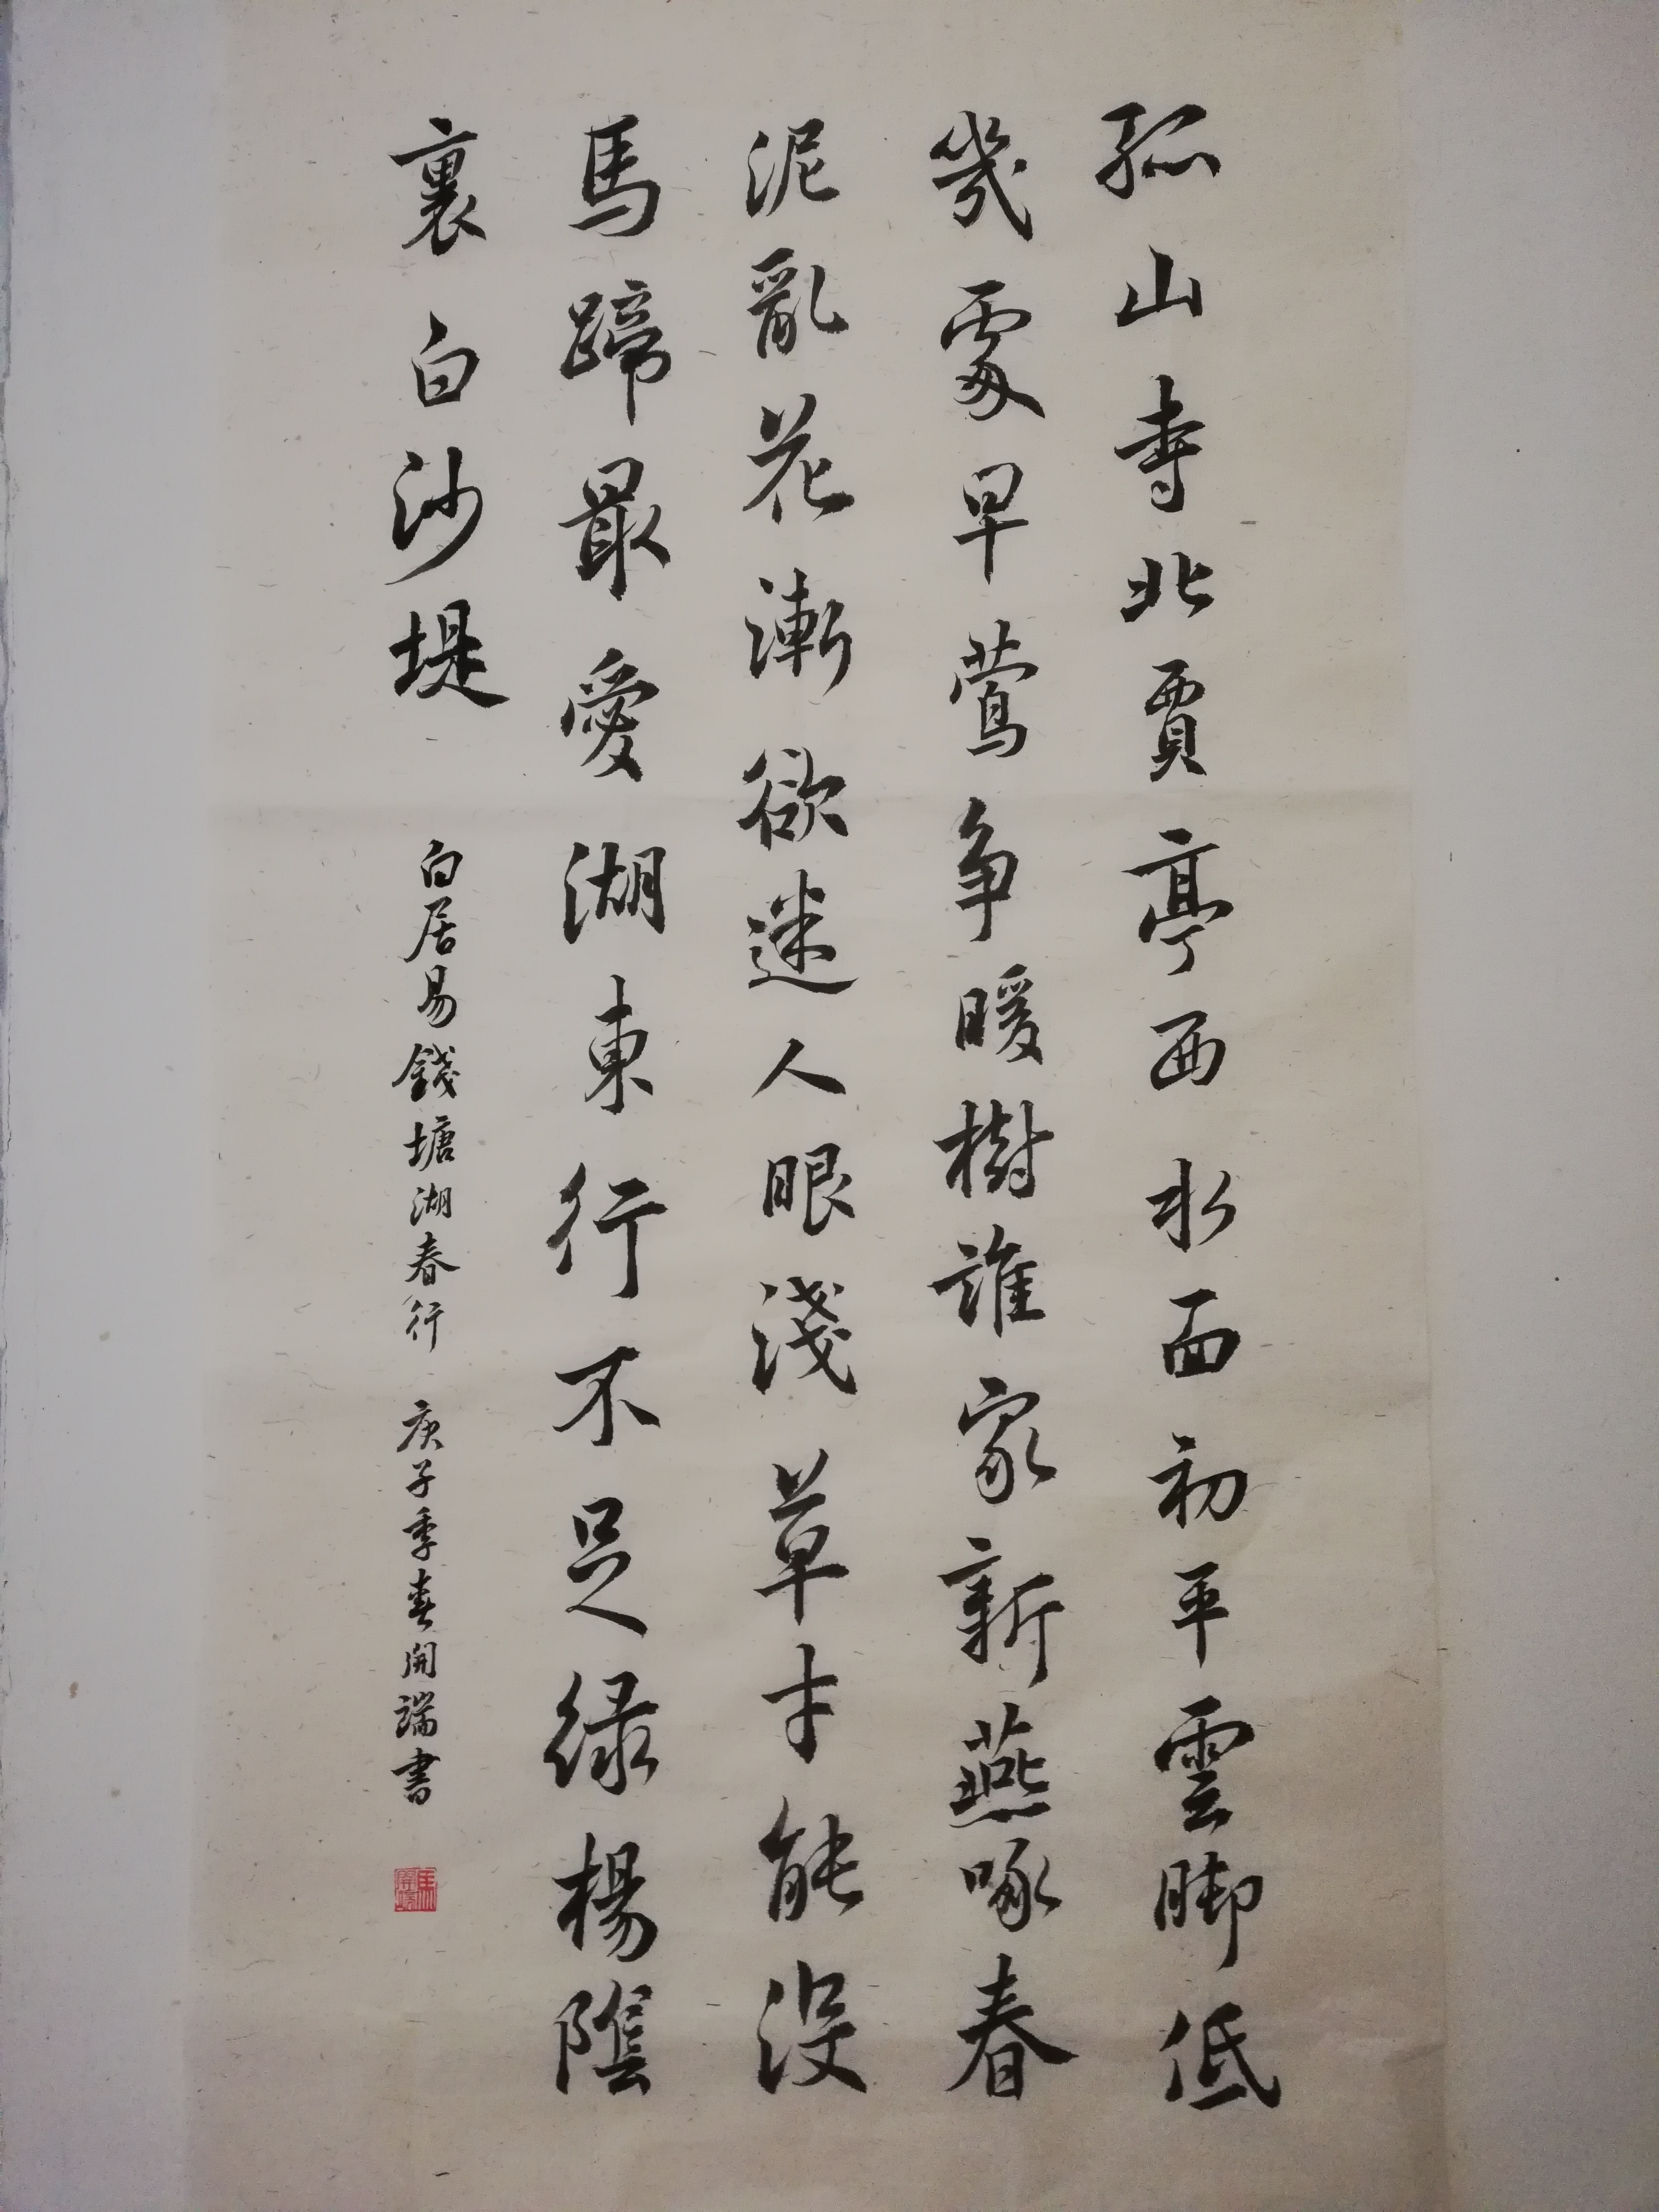 孤山寺北賈亭西水面初平雲脚低
幾處早鶯争暖樹誰家新燕啄春
泥亂花漸欲迷人眼淺草才能没
馬蹄最愛湖東行不足緑楊陰
裏白沙堤
白居易錢塘湖春行 庚子季春開端書